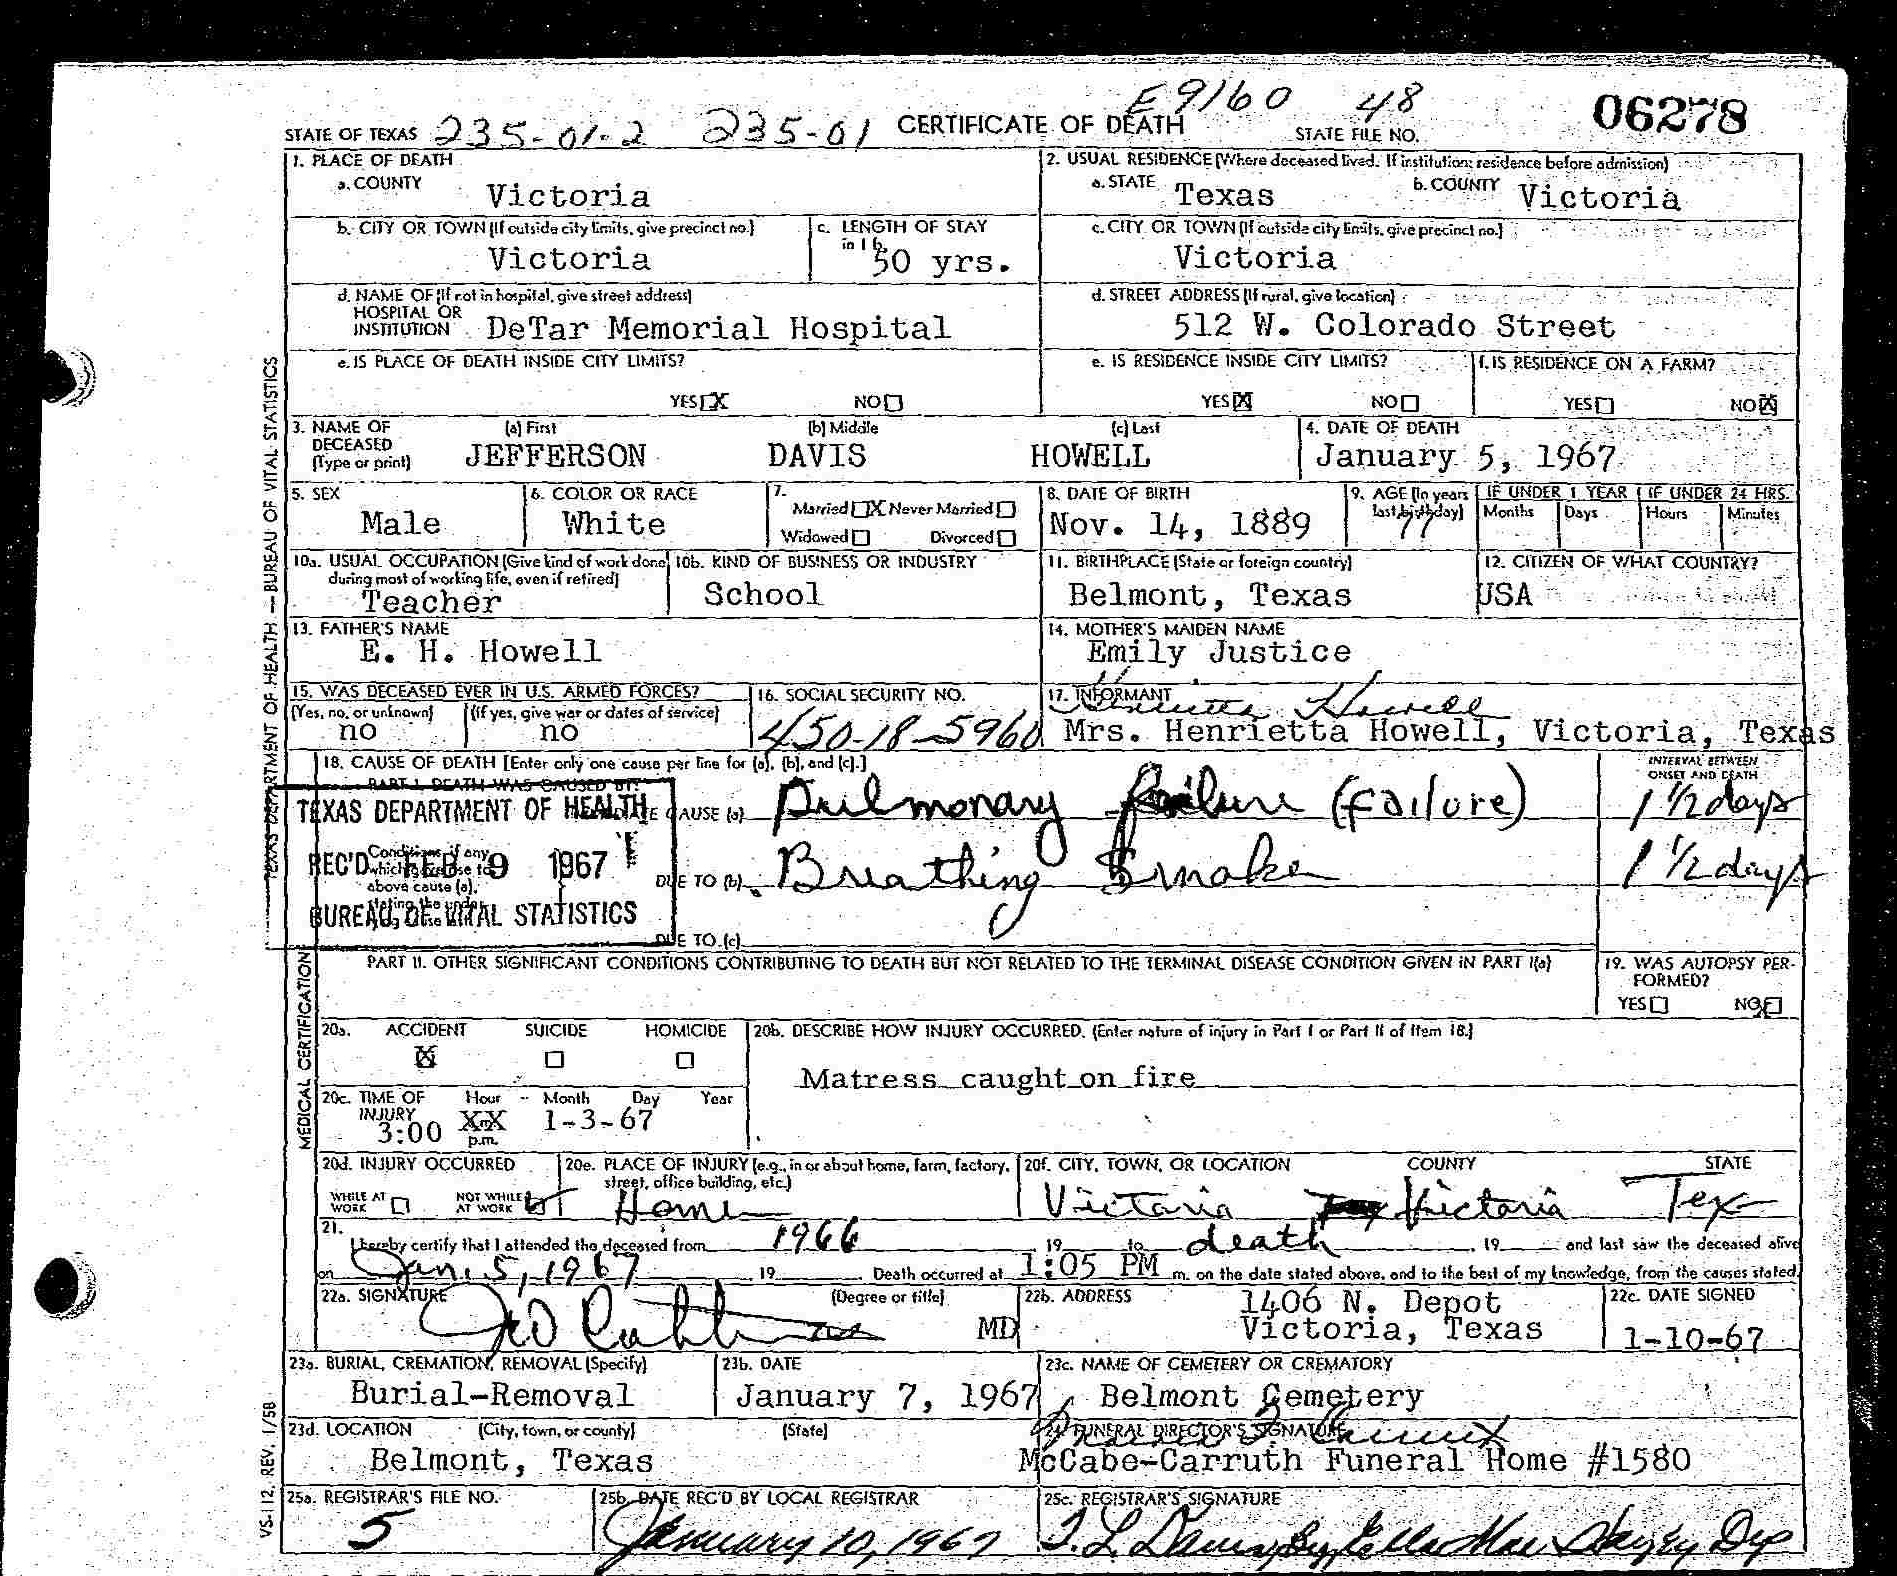 E9160 48 06278
STATE OF TEXAS 235-01-2 235-01 CERTIFICATE OF DEATH STATE FILE NO.
1. PLACE OF DEATH
a. COUNTY Victoria
2. USUAL RESIDENCE (Where deceased lived. If institution: residence before admission)
a. STATE Texas b. COUNTY Victoria
b. CITY OR TOWN (If outside city limits, give precinct no.) Victoria
c. LENGTH OF STAY in 1 b. 50 yrs.
c. CITY OR TOWN (If outside city limits, give precinct no.) Victoria
d. NAME OF (If not in hospital, give street address) HOSPITAL OR INSTITUTION DeTar Memorial Hospital
d. STREET ADDRESS (If rural, give location) 512 W. Colorado Street
e. IS PLACE OF DEATH INSIDE CITY LIMITS? YES X NO
e. IS RESIDENCE INSIDE CITY LIMITS? YES X NO
f. IS RESIDENCE ON A FARM? YES NO X
3. NAME OF DECEASED (Type or print) (a) First JEFFERSON (b) Middle DAVIS (c) Last HOWELL
4. DATE OF DEATH January 5, 1967
5. SEX Male
6. COLOR OR RACE White
7. Married X Never Married Widowed Divorced
8. DATE OF BIRTH Nov. 14, 1889
9. AGE (In years last birthday) 77
IF UNDER 1 YEAR Months Days IF UNDER 24 HRS. Hours Minutes
10a. USUAL OCCUPATION (Give kind of work done during most of working life, even if retired) Teacher
10b. KIND OF BUSINESS OR INDUSTRY School
11. BIRTHPLACE (State or foreign country) Belmont, Texas
12. CITIZEN OF WHAT COUNTRY? USA
13. FATHER'S NAME E. H. Howell
14. MOTHER'S MAIDEN NAME Emily Justice
15. WAS DECEASED EVER IN U.S. ARMED FORCES?
(Yes, no, or unknown) no (If yes, give war or dates of service) no
16. SOCIAL SECURITY NO. 450-18-5960
17. INFORMANT Henrietta Howell
Mrs. Henrietta Howell, Victoria, Texas
18. CAUSE OF DEATH [Enter only one cause per line for (a), (b), and (c).]
INTERVAL BETWEEN ONSET AND DEATH
PART I. DEATH WAS CAUSED BY:
IMMEDIATE CAUSE (a) Pulmonary failure (failure) 1 1/2 days
Conditions, if any, which gave rise to above cause (a), stating the under-lying cause last.
DUE TO (b) Breathing Smoke 1 1/2 days
DUE TO (c)
TEXAS DEPARTMENT OF HEALTH
REC'D FEB 9 1967
BUREAU OF VITAL STATISTICS
PART II. OTHER SIGNIFICANT CONDITIONS CONTRIBUTING TO DEATH BUT NOT RELATED TO THE TERMINAL DISEASE CONDITION GIVEN IN PART I(a)
19. WAS AUTOPSY PERFORMED? YES NO X
20a. ACCIDENT X SUICIDE HOMICIDE
20b. DESCRIBE HOW INJURY OCCURRED. (Enter nature of injury in Part I or Part II of Item 18.)
Matress caught on fire
20c. TIME OF INJURY Hour Month Day Year
3:00 XX p.m. 1-3-67
20d. INJURY OCCURRED WHILE AT WORK NOT WHILE AT WORK
20e. PLACE OF INJURY (e.g., in or about home, farm, factory, street, office building, etc.) Home
20f. CITY, TOWN, OR LOCATION COUNTY STATE
Victoria Victoria Tex
21. I hereby certify that I attended the deceased from 1966 19 to death, 19 and last saw the deceased alive
on Jan. 5, 1967 19 . Death occurred at 1:05 PM m. on the date stated above, and to the best of my knowledge, from the causes stated.
22a. SIGNATURE (Degree or title) MD
22b. ADDRESS 1406 N. Depot
Victoria, Texas
22c. DATE SIGNED 1-10-67
23a. BURIAL, CREMATION, REMOVAL (Specify) Burial-Removal
23b. DATE January 7, 1967
23c. NAME OF CEMETERY OR CREMATORY Belmont Cemetery
23d. LOCATION (City, town, or county) (State) Belmont, Texas
24. FUNERAL DIRECTOR'S SIGNATURE
McCabe-Carruth Funeral Home #1580
25a. REGISTRAR'S FILE NO. 5
25b. DATE REC'D BY LOCAL REGISTRAR January 10, 1967
25c. REGISTRAR'S SIGNATURE
TEXAS DEPARTMENT OF HEALTH — BUREAU OF VITAL STATISTICS
MEDICAL CERTIFICATION
VS. 12, REV. 1/58